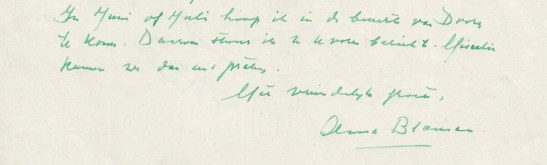 In Juni of Juli hoop ik in de buurt van Doorn
te komen. Daarvan stuur ik u te voren bericht. Misschien
kunnen we dan eens praten.
Met vriendelijke groet,
Anna Blaman